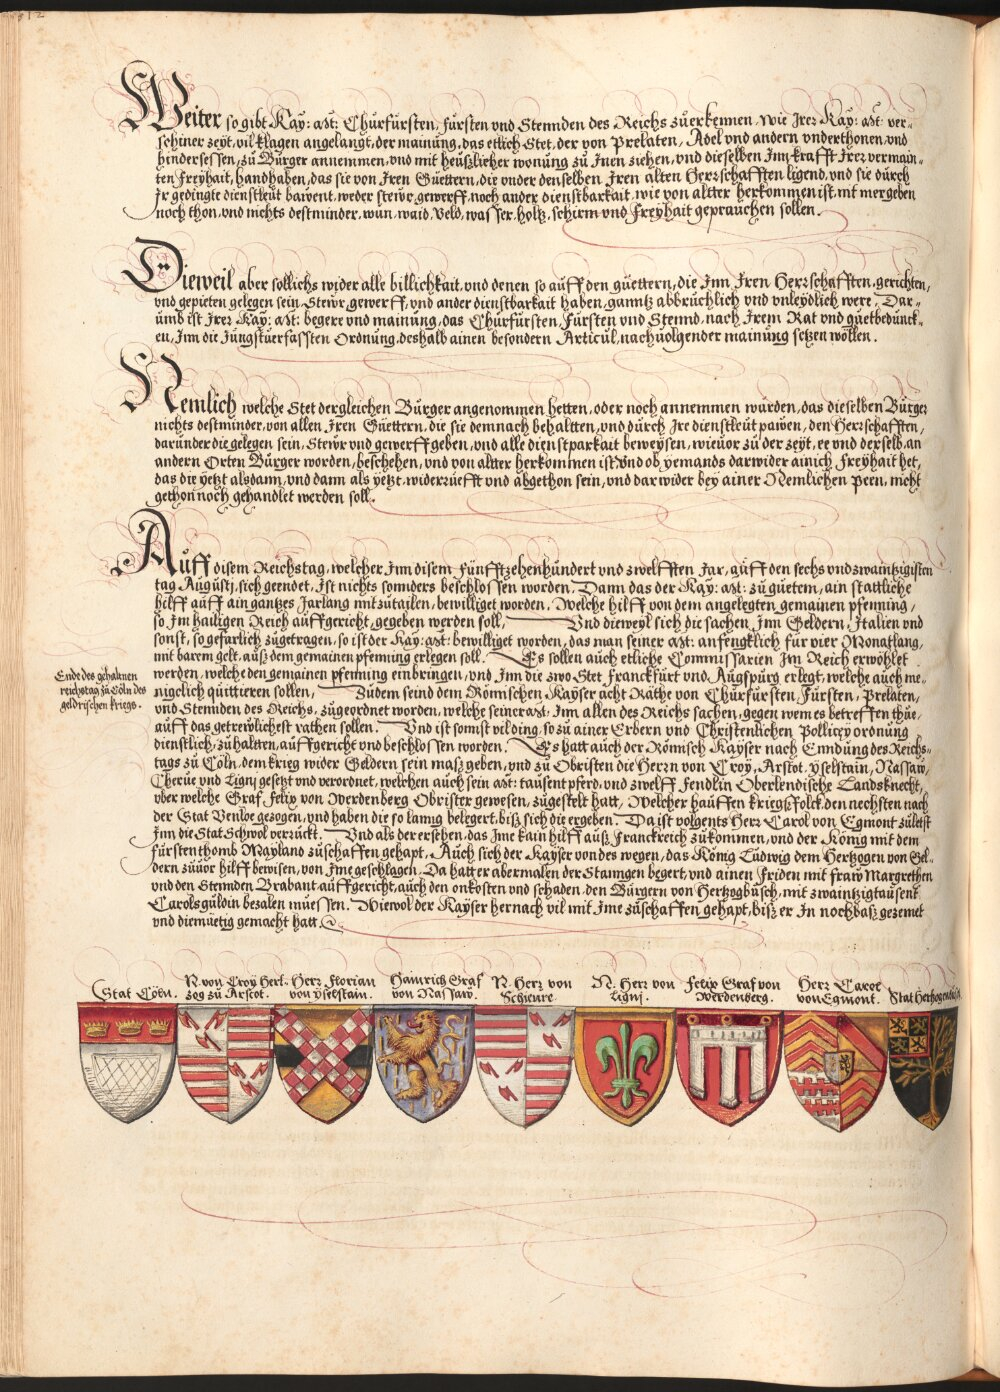 Weiter so gibt Kaÿ: Mt: Churfürsten, fürsten vnd Stennden des Reichs zuerkennen, wie Irer Kaÿ: Mt: ver-
schiner zeÿt, vil klagen angelangt, der mainung, das etlich Stet, der von Prelaten, Adel vnd andern vnderthonen, vnd
hindersessen, zu Bürger annemmen, vnd mit heüßlicher wonung zu Inen ziehen, vnd dieselben Inn krafft Irer vermain-
ten freÿhait, handhaben, das sie von Iren Güettern, die vnder denselben Iren alten Herrschafften ligend, vnd sie durch
Ir gedingte dienstleut bawent, weder stewr, gewerff, noch ander dienstbarkait, wie von altter herkommen ist, nit mer geben
noch thon, vnd nichts destminder, wun, waid, Veld, wasser, holtz, schirm vnd freÿhait geprauchen sollen.
Dieweil aber sollichs wider alle billichkait, vnd denen so auff den güettern, die Inn Iren Herrschafften, gerichten,
vnd gepieten gelegen sein, Stewr, gewerff, vnd ander dienstbarkait haben, ganntz abbrüchlich vnd vnleÿdlich were, Dar-
umb ist Irer Kaÿ: Mt: begere vnd mainung, das Churfürsten, Fürsten vnd Stennd, nach Irem Rat vnd guetbedunck-
en, Inn die Jüngstuerfassten Ordnung, deshalb ainen besondern Articul, nachuolgender mainung setzen wöllen.
Nemlich welche Stet dergleichen Bürger angenommen hetten, oder noch annemmen würden, das dieselben Bürger
nichts destminder, von allen Iren Güettern, die sie demnach behaltten, vnd durch Ire dienstleüt pawen, den Herrschafften,
darunder die gelegen sein, Stewr vnd gewerff geben, vnd alle dienstparkait beweÿsen, wieuor zu der zeÿt, ee vnd der selb, an
andern Orten Bürger worden, beschehen, vnd von altter herkommen ist Vnd ob ÿemands darwider ainich freÿhait het,
das die ÿetzt alsdann, vnd dann als ÿetzt, widerrüefft vnd abgethon sein, vnd dar wider beÿ ainer Nemlichen peen, nicht
gethon noch gehandlet werden soll.
Auff disem Reichstag, welcher Inn disem fünfftzehenhundert vnd zwelfften Jar, auff den sechs vnd zwaintzigisten
tag Augusti, sich geendet, Ist nichts sonnders beschlossen worden, Dann das der Kaÿ: Mt: zu guetem, ain stattliche
hilff auff ain gantzes Jarlang mitzutailen, bewilliget worden, Welche hilff von dem angelegten gemainen pfenning,
so Im hailigen Reich auffgericht, gegeben werden soll, Vnd dieweÿl sich die sachen, Inn Geldern, Italien vnd
sonst, so gefarlich zugetragen, so ist der Kaÿ: Mt: bewilliget worden, das man seiner Mt: anfengklich für vier Monatlang,
mit barem gelt, auß dem gemainen pfenning erlegen soll. Es sollen auch etliche Commissarien Im Reich erwöhlet
werden, welche den gemainen pfenning einbringen, vnd Inn die zwo Stet, Franckfurt vnd Augspurg erlegt, welche auch me-
nigclich quittieren sollen, Zudem seind dem Römischen Kaÿser acht Räthe von Churfürsten, Fürsten, Prelaten,
vnd Stennden des Reichs, zugeordnet worden, welche seiner Mt: Inn allen des Reichs sachen, gegen wem es betreffen thue,
auff das getrewlichest rathen sollen. Vnd ist sonnst vil ding, so zu ainer Erbern vnd Christenlichen Pollicey ordnung
dienstlich, zuhaltten, auffgericht vnd beschlossen worden. Es hatt auch der Römisch Kaÿser nach Enndung des Reichs-
tags zu Cöln, dem krieg wider Geldern sein maß geben, vnd zu Obristen die Herrn von Croÿ, Arstot, ÿselstain, Nassaw,
Cherüe vnd Lignj gesetzt vnd verordnet, welchen auch sein Mt: tausent pferd, vnd zwelff fendlin Oberlendische Landsknecht,
vber welche Graf Felix von Werdenberg Obrister gewesen, zugestelt hatt, Welcher hauffen kriegßfolck, den nechsten nach
der Stat Venloe gezogen, vnd haben die so lanng belegert, biß sich die ergeben. Da ist volgents Herr Carol von Egmont zuletst
Inn die Stat Schwol verruckt. Vnd als der ersehen, das Ime kain hilff auß Franckreich zukommen, vnd der König mit dem
fürstenthomb Maÿland zuschaffen gehapt, Auch sich der Kaÿser von des wegen, das König Ludwig dem Hertzogen von Gel-
dern zuuor hilff bewisen, von Ime geschlagen, Da hatt er abermalen der Stanngen begert, vnd ainen friden mit fraw Margrethen
vnd den Stennden Brabant auffgericht, auch den onkosten vnd schaden, den Bürgern von Hertzogbusch, mit zwaintzig tausent
Carolsguldin bezalen müessen. Wiewol der Kaÿser hernach vil mit Ime zuschaffen gehapt, biß er In noch baß gezemet
vnd diemüetig gemacht hatt.
Ende des gehaltnen
reichstag zu Cöln des
geldrischen kriegs.
Stat Cöln.
R. von Croÿ Hertzog zu Arscot.
Herr Florian von ÿselstain.
Hainrich Graf von Nassaw.
N. Herr von Schieure.
N. Herr von Lignj.
Felix Graf von Werdenberg.
Herr Carol von Egmont.
Stat Hertzogenbusch.